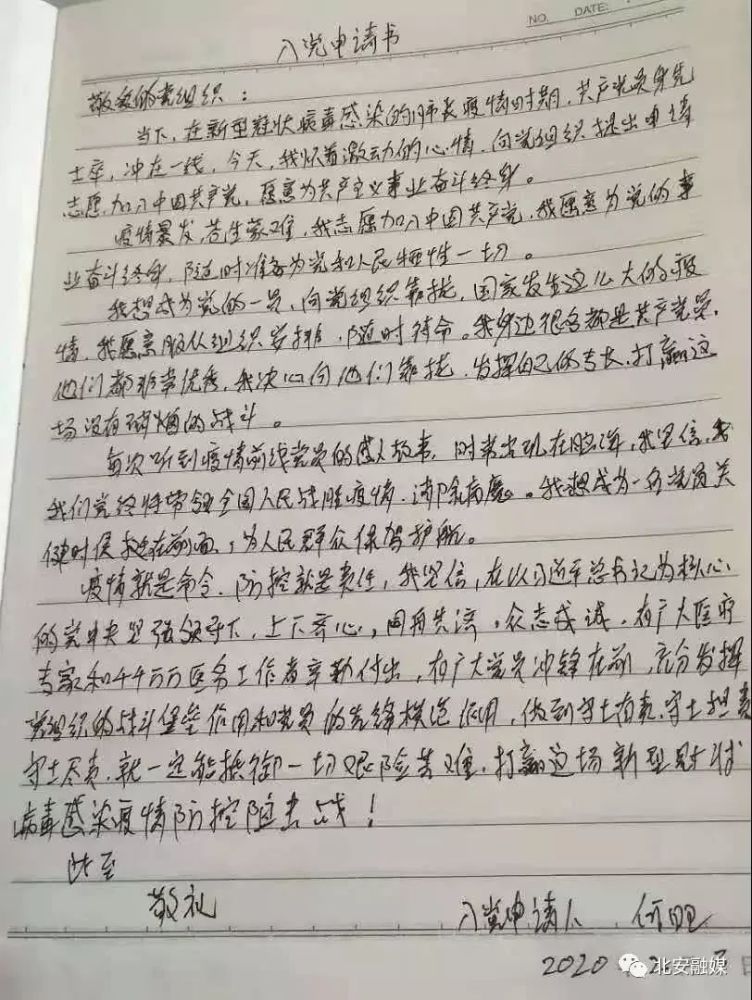 NO. DATE:
入党申请书
敬爱的党组织：
当下，在新型冠状病毒感染的肺炎疫情时期，共产党员身先
士卒，冲在一线，今天，我怀着激动的心情，向党组织提出申请
志愿加入中国共产党，愿意为共产主义事业奋斗终身。
疫情暴发，苍生蒙难，我志愿加入中国共产党，我愿意为党的事
业奋斗终身，随时准备为党和人民牺牲一切。
我想成为党的一员，向党组织靠拢，国家发生这么大的疫
情，我愿意服从组织安排，随时待命。我身边很多都是共产党员，
他们都非常优秀，我决心向他们靠拢，发挥自己的专长，打赢这
场没有硝烟的战斗。
每次听到疫情前线党员的感人故事，时常出现在脑海，我坚信，我
我们党终将带领全国人民战胜疫情，请除病魔。我想成为一名党员关
键时候挺在前面，为人民群众保驾护航。
疫情就是命令，防控就是责任，我坚信，在以习近平总书记为核心
的党中央坚强领导下，上下齐心，同舟共济，众志成诚，有广大医疗
专家和千千万万医务工作者辛勤付出，有广大党员冲锋在前，充分发挥
党组织的战斗堡垒作用和党员的先锋模范作用，做到守土有责、守土担责
守土尽责，就一定能抵御一切艰险苦难，打赢这场新型冠状
病毒感染疫情防控阻击战！
此至
敬礼
入党申请人 何
2020 2 日
北安融媒